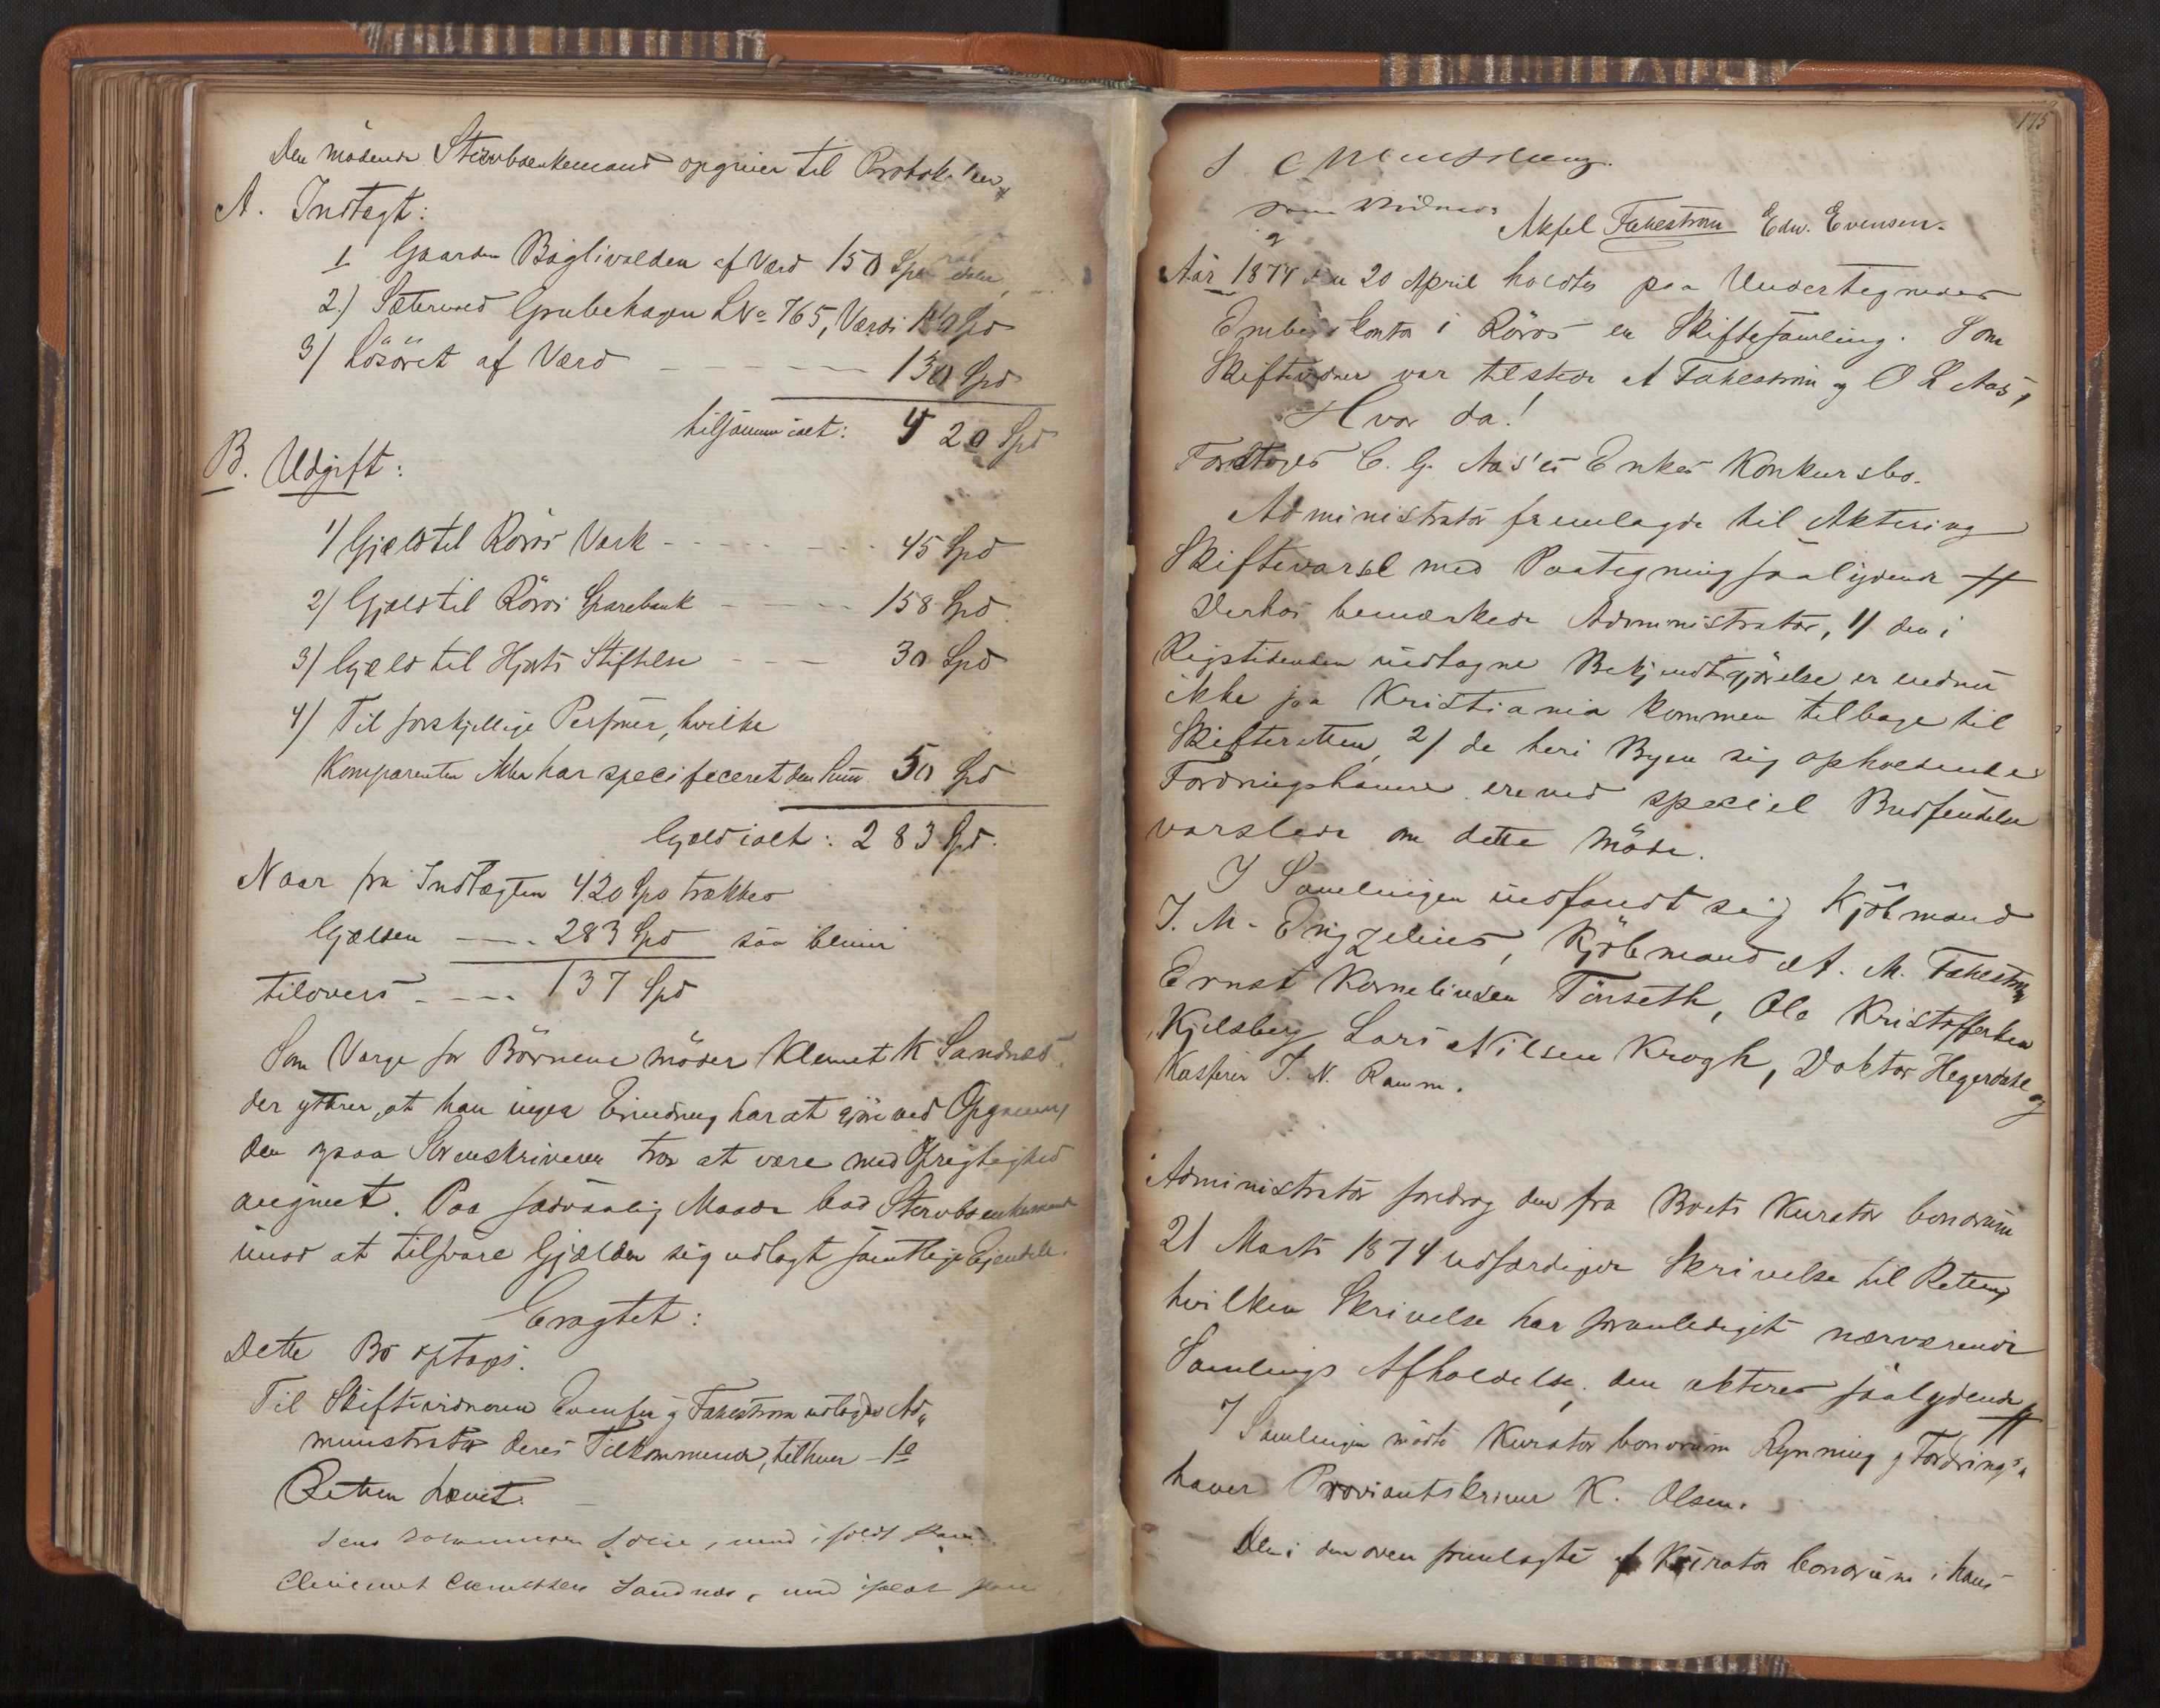 Den mødende Stervboenkemand opgiver til Protokollen
A. Indtægt:
1 Gaarden Baglivolden af Værd 150 Spd
2) Sæterved Grubehagen LNo 765, Værdi 140 Spd
3) Løsøret af Værd - - - - - 130 Spd
tilsammen ialt: 420 Spd
B. Udgift:
1) Gjæld til Røros Værk - - - - - 45 Spd
2) Gjæld til Røros Sparebank - - - - 158 Spd
3) Gjæld til Hjorts Stiftelse - - - 30 Spd
4) Til forskjellige Personer, hvilke
Komparenten ikke har specificeret den Sum 50 Spd
Gjæld ialt: 283 Spd.
Naar fra Indtægten 420 Spd trækkes
Gjælden - - - 283 Spd saa bliver
tilovers - - - - 137 Spd
Som Værge for Børnene møder Klemet K Sandnes
der ytrer, at han ingen Erindring har at gjøre ved Opgivning
den ogsaa Sorenskriveren tror at være med Oprigtighed
angivet. Paa sædvanlig Maade bad Stervboenkemand
imod at tilsvare Gjælden sig udlagt samtlige Eiendele.
Eragtet:
Dette Bo optages.
Til Skiftevidnerne Evensen og Fahlstrøm udlagdes Ad„
ministrator deres Tilkommende, til hver
Retten hævet.
med iholdt Pen
Sandnes, med iholdt Pen
175
som Vidner:
Aksel Fahlstrøm Edw. Evensen.
Aar 1874 den 20 April holdtes paa Undertegnedes
Embedskontor i Røros en Skiftesamling. Som
Skiftevidner var tilstede A Fahlstrøm og O L Aas,
Hvor da!
Foretoges C. G. Aas'es Enkes Konkursbo.
Administrator fremlagde til Aktering
Skiftevarsel med Paategning saalydende #
Derhos bemærkede Administrator, 1) den i
Rigstidenden indtagne Bekjendtgjørelse er endnu
ikke fra Kristiania kommen tilbage til
Skifteretten, 2) de heri Byen sig opholdende
Fordringshavere ere ved speciel Budsendelse
varslede om dette Møde.
I Samlingen indfandt sig Kjøbmand
J. M. Engzelius, Kjøbmand A. M. Fahlstrøm
Ernst Korneliusen Tønseth, Ole Kristoffersen
Kjelsberg Lars Nilsen Krogh, Doktor Hegerdahl og
Kasserer J. N. Ramm.
Administrator foredrog den fra Boets Kurator bonorum
21 Marts 1874 udfærdigede Skrivelse til Retten,
hvilken Skrivelse har foranlediget nærværende
Samlings Afholdelse, den akteres saalydende #
I Samlingen mødte Kurator bonorum Rynning og Fordrings„
haver Proviantskriver K. Olsen.
Den i den oven fremlagte af Kurator bonorum i hans